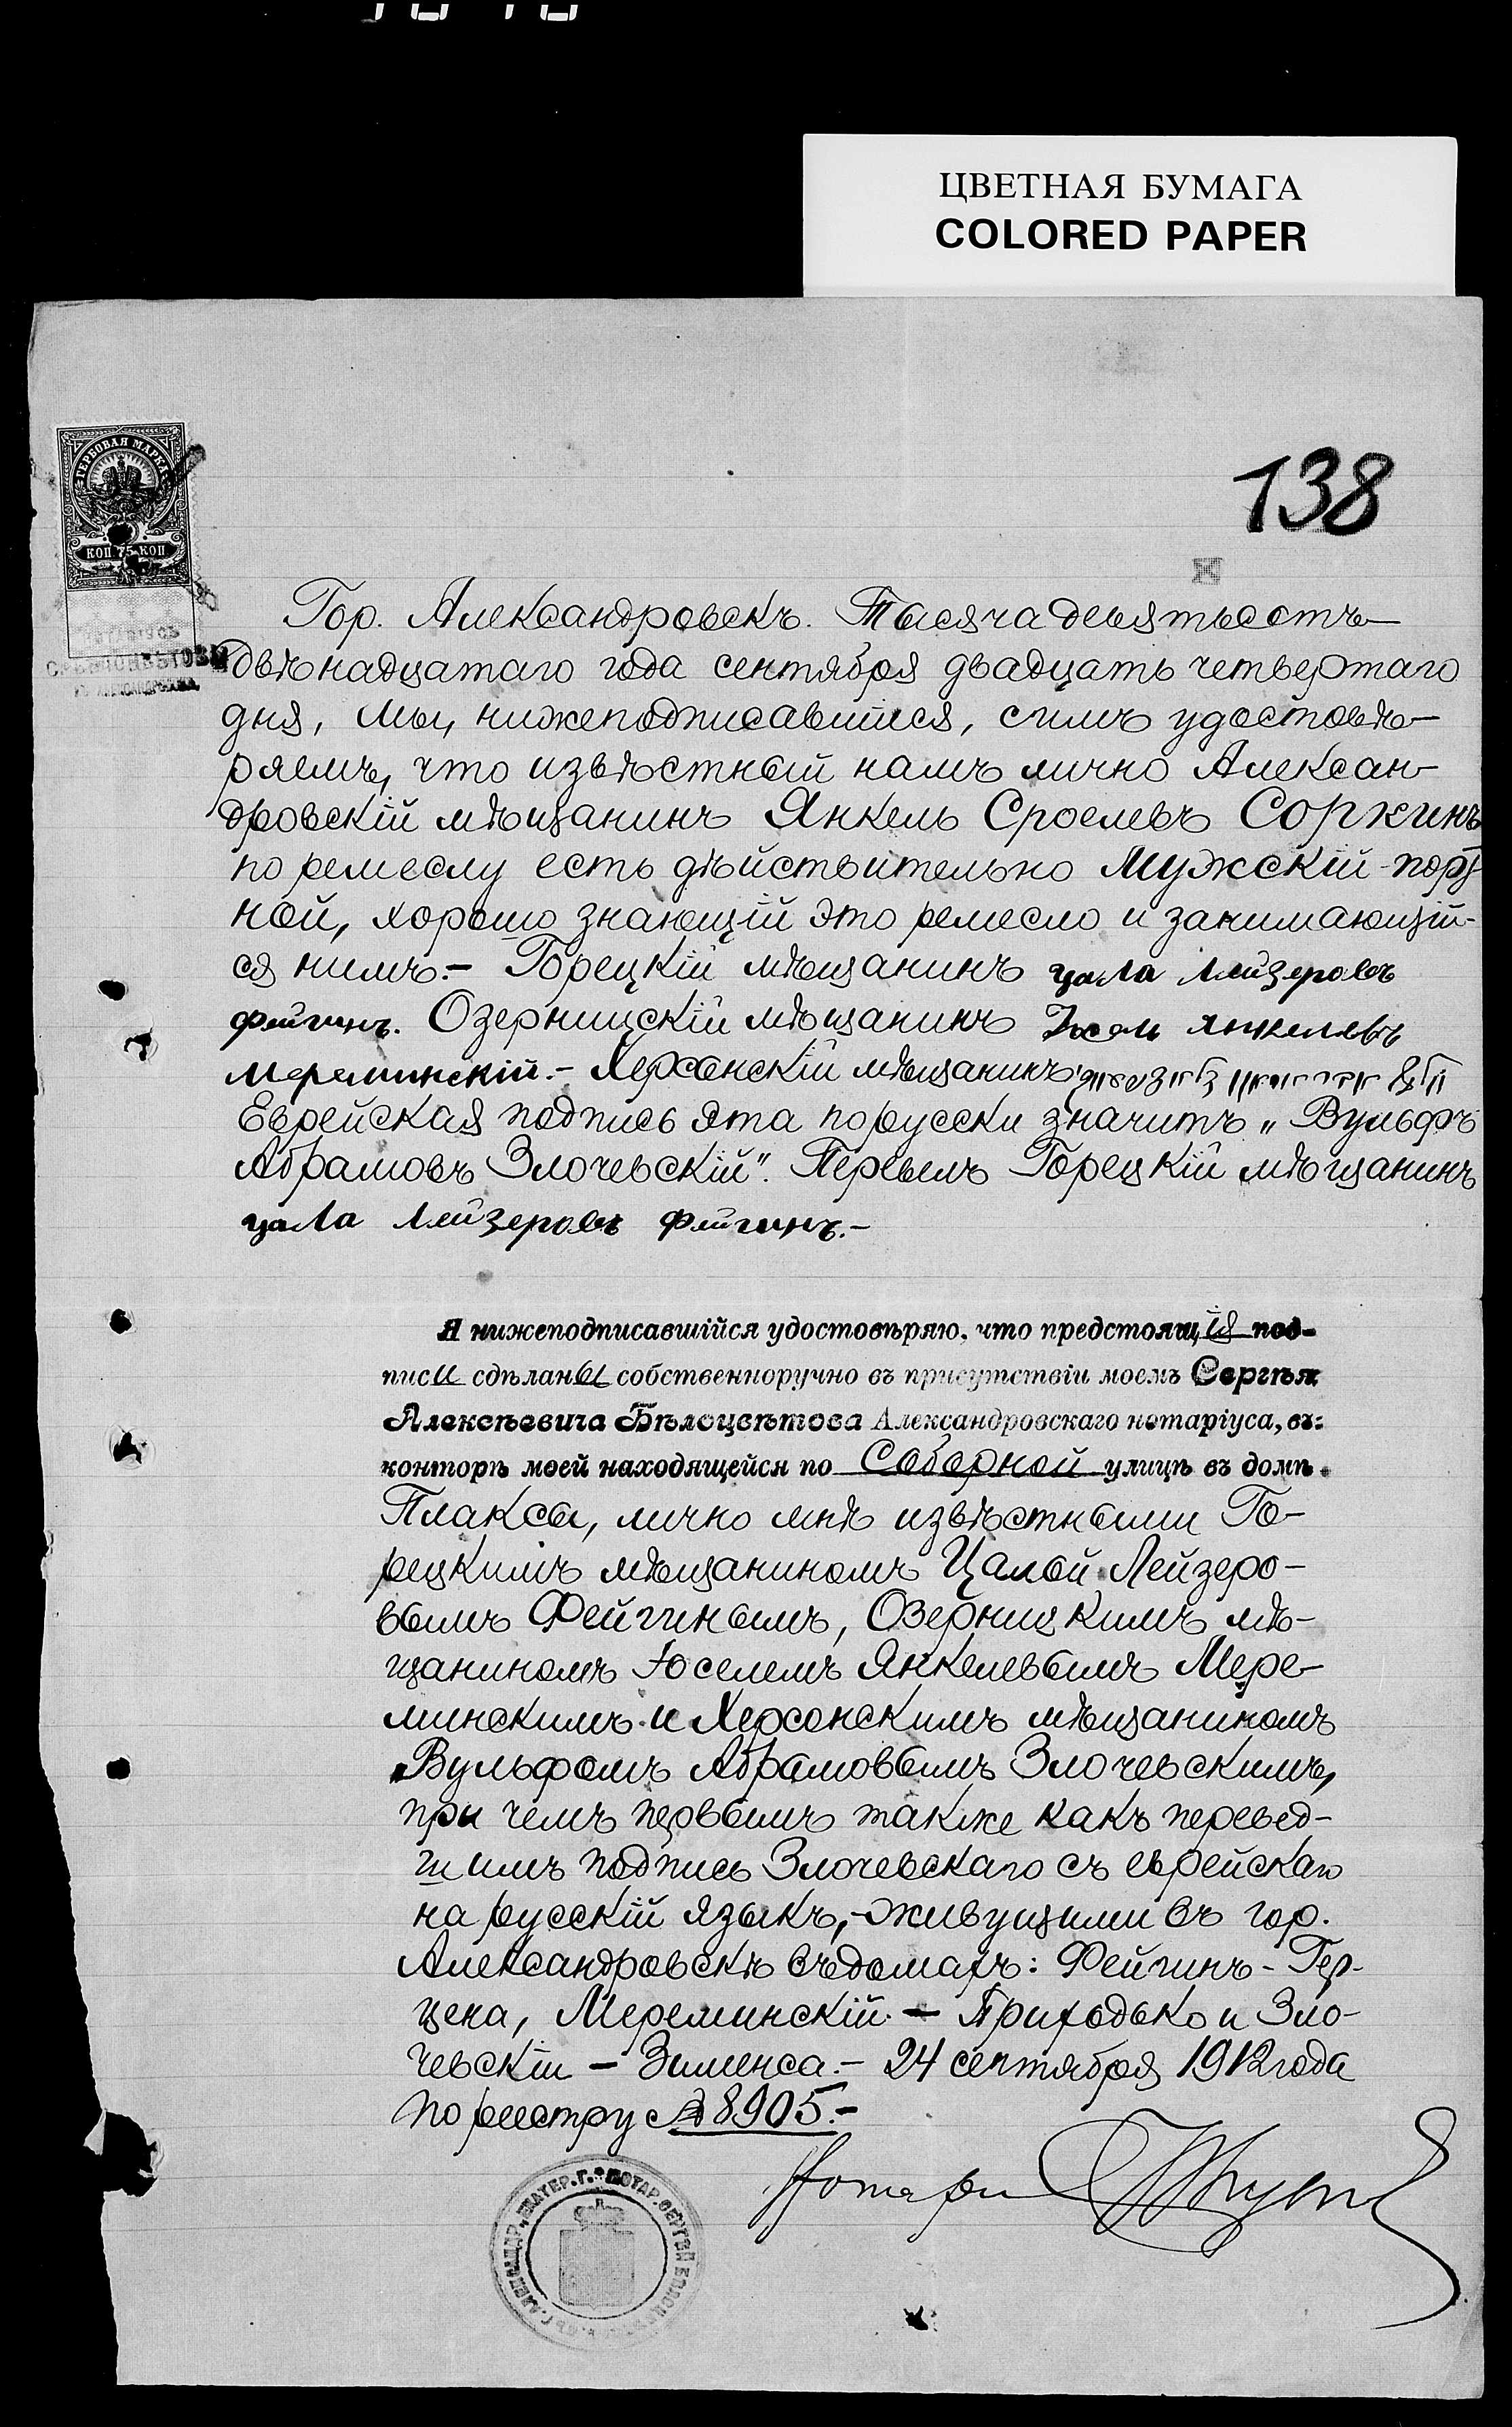 ЦВЕТНАЯ БУМАГА
COLORED PAPER
138
ГЕРБОВАЯ МАРКА
КОП 75 КОП
Гор. Александровскъ. Тысяча девятьсотъ
двѣнадцатаго года сентября двадцать четвертаго
дня, мы, нижеподписавшіеся, симъ удостовѣ-
ряемъ, что извѣстный намъ лично Алексан-
дровскій мѣщанинъ Янкель Сроелевъ Соркинъ
по ремеслу есть дѣйствительно Мужскій порт-
ной, хорошо знающій это ремесло и занимающій-
ся нимъ.- Горецкій мѣщанинъ цала Лейзеровъ
фейгинъ. Озерницскій мѣщанинъ Іосель янкелевъ
мереминскій.- Херсонскій мѣщанинъ
Еврейская подпись эта порусски значитъ „Вульфъ
Абрамовъ Злочевскій". Перевелъ Горецкій мѣщанинъ
цала Лейзеровъ фейгинъ.-
Я нижеподписавшійся удостовѣряю, что предстоящія под-
писи сдѣланы собственноручно въ присутствіи моемъ Сергѣя
Алексѣевича Бѣлоцвѣтова Александровскаго нотаріуса, въ
конторѣ моей находящейся по Соборной улицѣ въ домѣ
Плаксы, лично мнѣ извѣстными Го-
рецкимъ мѣщаниномъ Цалой Лейзеро-
вымъ Фейгинымъ, Озерницкимъ мѣ-
щаниномъ Іоселемъ Янкелевымъ Мере-
минскимъ и Херсонскимъ мѣщаниномъ
Вульфомъ Абрамовымъ Злочевскимъ,
при чемъ первымъ также какъ перевед-
шимъ подпись Злочевскаго съ еврейскаго
на русскій языкъ,-живущими въ гор.
Александровскѣ въ домахъ: Фейгинъ - Гер-
цена, Мереминскій - Приходько и Зло-
чевскій - Зименса.- 24 сентября 1912 года
по реестру № 8905.-
Нотаріусъ